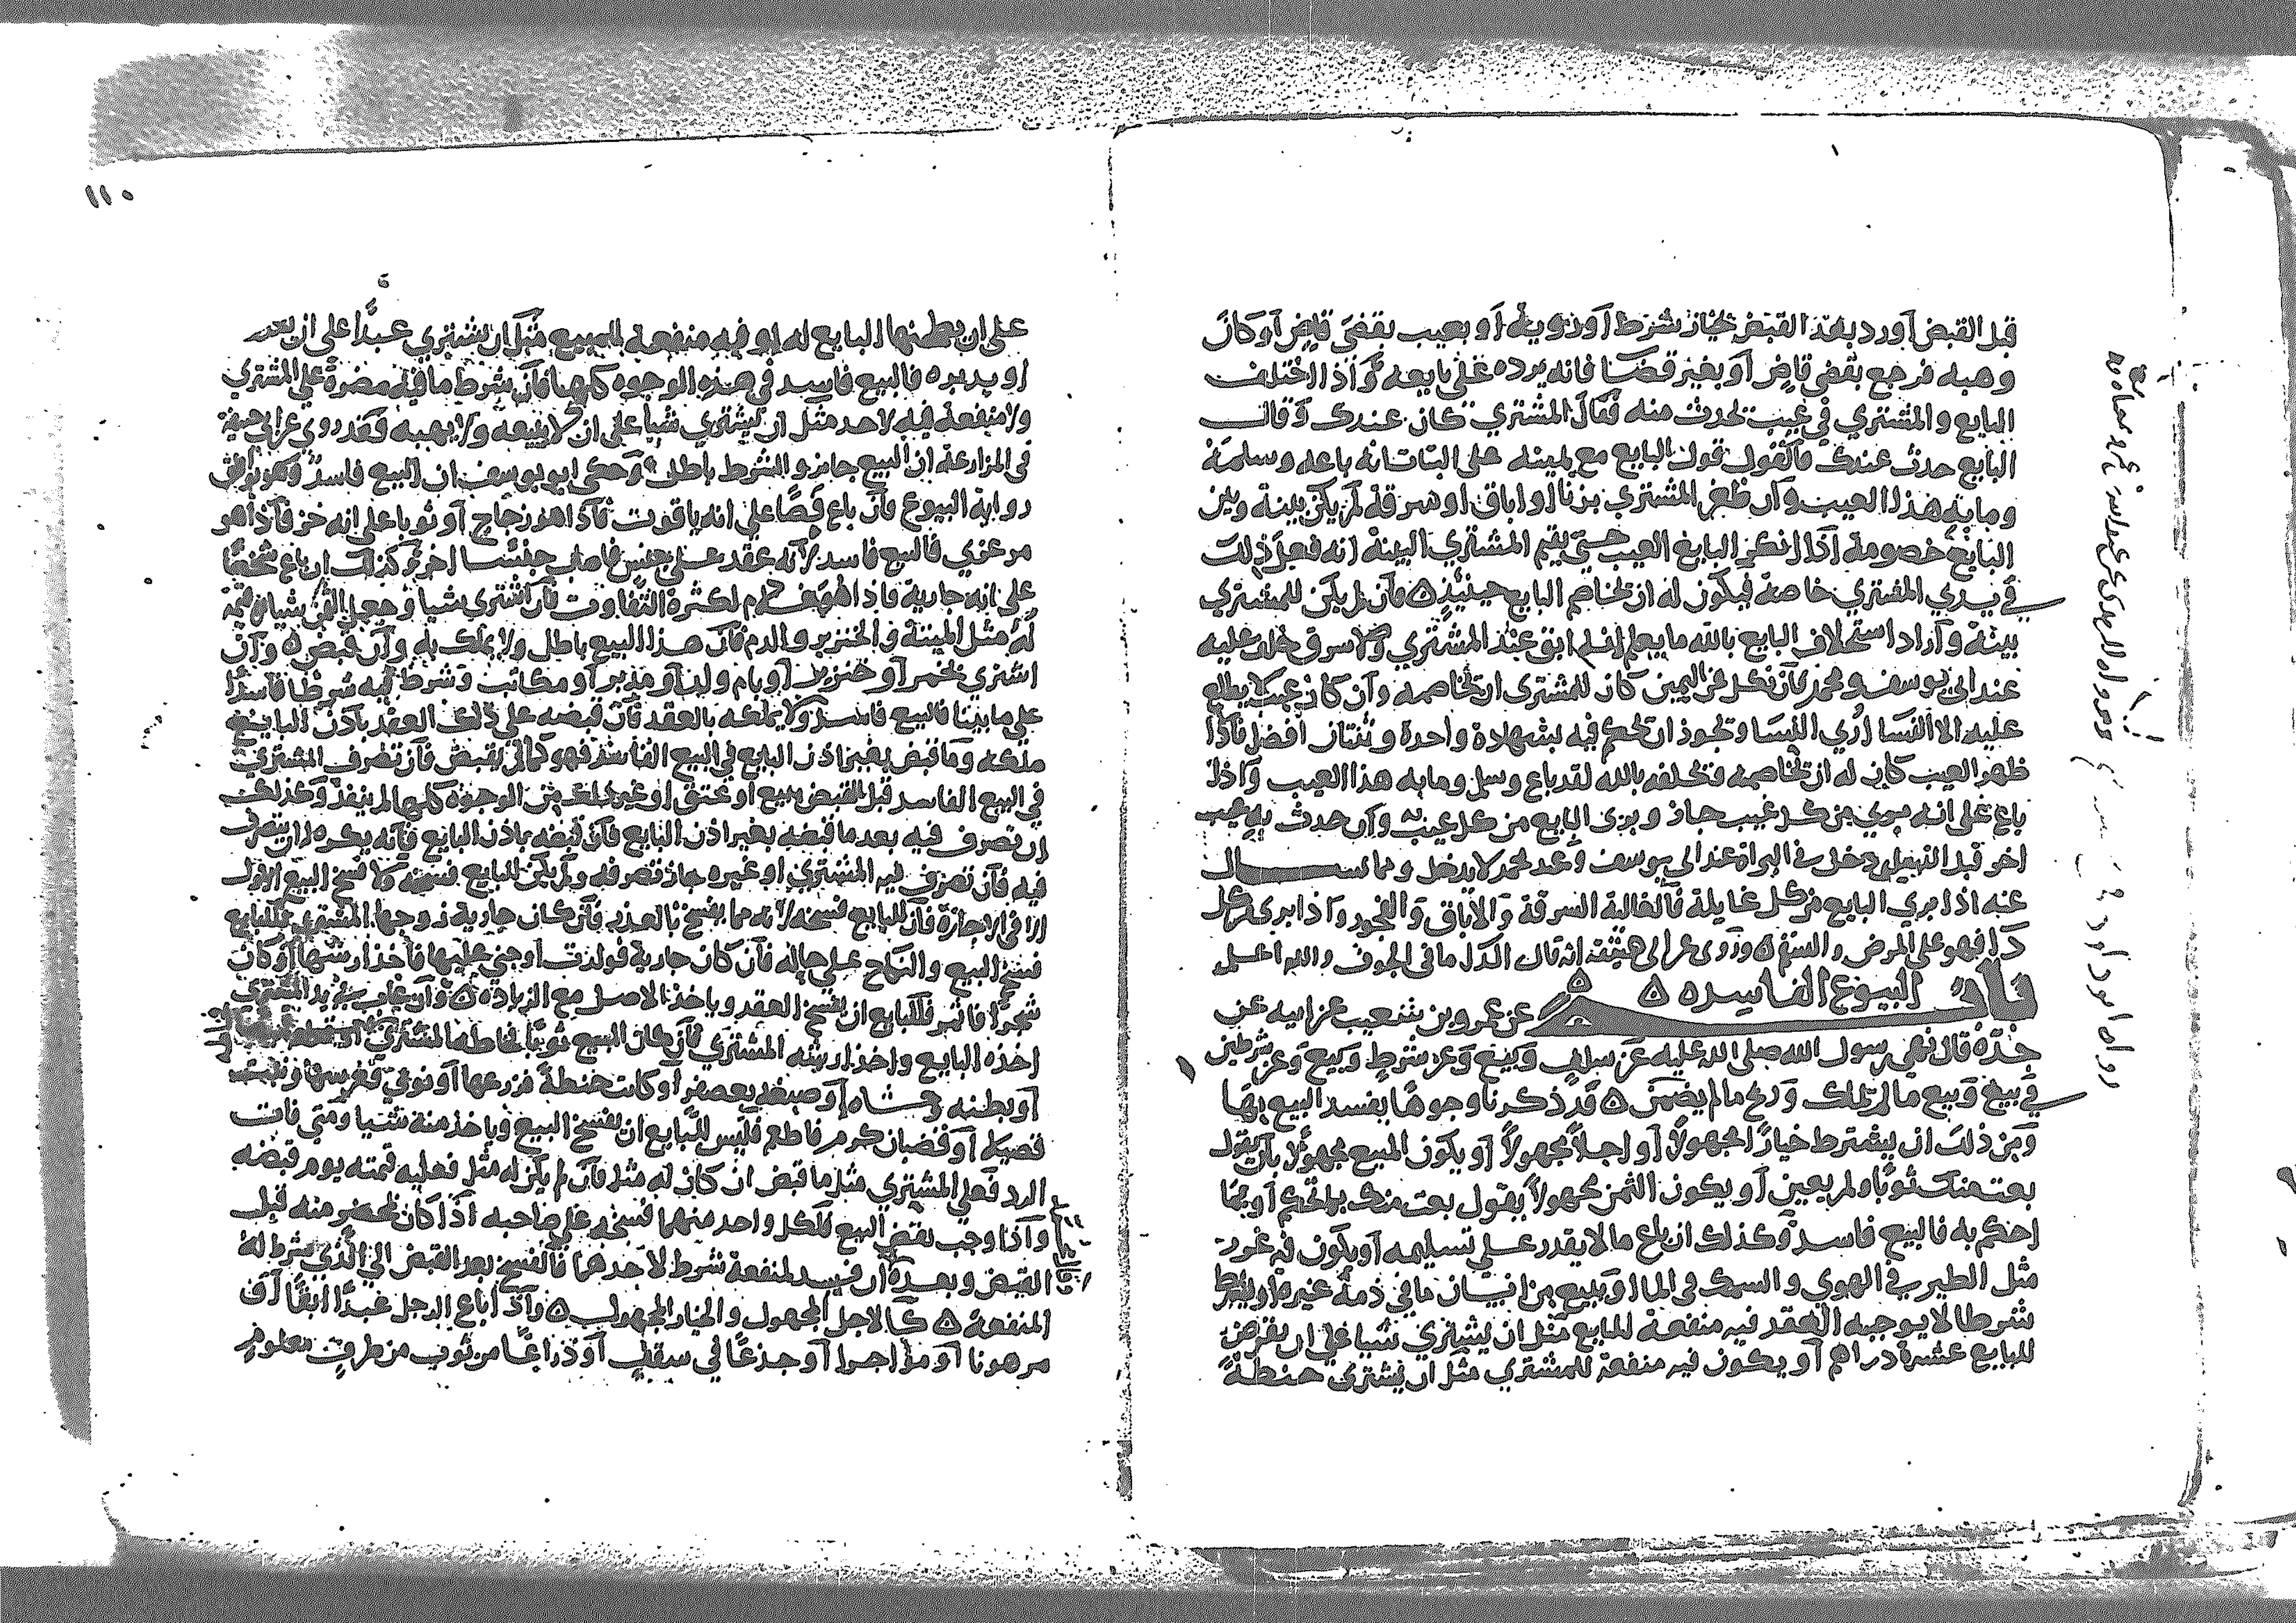 قبل القبض أو رد بعد القبض بخيار شرط أو رؤية أو بعيب بقضى قاض أو كان
وهبه فرجع بقضى قاض أو بغير قضا فانه يرده على بايعه واذا اختلف
البايع والمشتري في عيب يحدث منه فقال المشتري كان عندك وقال
البايع حدث عندك فالقول قول البايع مع يمينه على البتات انه باعه وسلمه
وما به هذا العيب وان ظفر المشتري بزنا او اباق او سرقة لم يكن بينه وبين
البايع خصومة اذا انكر البايع العيب حتى يقيم المشتري البينة انه فعل ذلك
في يدي المشتري خاصة فيكون له ان يخاصم البايع حينئذ فان لم يكن للمشتري
بينة واراد استحلاف البايع بالله ما يعلم انه ابق عند المشتري ولا سرق حلف عليه
عند ابي يوسف ومحمد فان نكل عن اليمين كان للمشتري ان يخاصمه وان كان عيب لا يطلع
عليه الا النسا اري النسا ويجوز ان يحكم فيه بشهادة واحدة وثنتان أفضل فاذا
ظهر العيب كان له ان يخاصمه فيحلفه بالله لقد باع وسلم وما به هذا العيب واذا
باع على انه بري من كل عيب جاز وبرى البايع من كل عيب وان حدث به عيب
اخر قبل التسليم دخل في البراة عند ابي يوسف وعند محمد لا يدخل ومما سال
عنه اذا بري البايع من كل غايلة فالغالبة السرقة والاباق والفجور واذا ابرى من كل
دا فهو على المرض والسقم وروى عن ابي حنيفة انه قال الدا كل ما في الجوف والله اعلم
باب البيوع الفاسده عن عمرو بن شعيب عن ابيه عن
جده قال نهى رسول الله صلى الله عليه عن سلف وبيع وعن شرط وبيع وعن شرطين
في بيع وبيع ما لم يملك وربح ما لم يضمن قد ذكرنا وجوها يفسد البيع بها
ومن ذلك ان يشترط خيارا مجهولا أو اجلا مجهولا أو يكون المبيع مجهولا بان يقول
بعت منك ثوبا ولم يعين أو يكون الثمن مجهولا يقول بعت منك بما تحكم أو بما
احكم به فالبيع فاسد وكذلك ان باع ما لا يقدر على تسليمه أو يكون فيه غرر
مثل الطير في الهوي والسمك في الما او يبيع من انسان ما في ذمة غيره او يشترط
شرطا لا يوجبه العقد فيه منفعة للبايع مثل ان يشتري شيا على ان يقرض
للبايع عشرة دراهم أو يكون فيه منفعة للمشتري مثل ان يشتري حنطة
١١٠
على ان يطحنها البايع له او فيه منفعة للمبيع مثل ان يشتري عبدا على ان
او يدبره فالبيع فاسد في هذه الوجوه كلها فان شرط ما فيه مضرة على المشتري
ولا منفعة فيه لاحد مثل ان يشتري شيا على ان لا يبيعه ولا يهبه فقد روي عن ابي حنيفة
في المزارعة ان البيع جايز والشرط باطل وحكى ابو يوسف ان البيع فاسد وهو
رواية البيوع فان باع فصا على انه ياقوت فاذا هو زجاج أو ثوبا على انه خز فاذا هو
مرعزي فالبيع فاسد لانه عقد على جنس فاصاب جنسا اخر وكذلك ان باع شخصا
على انه جارية فاذا هو غلام لكثرة التفاوت فان اشترى شيا وجعل الثمن شيا لا قيمة
له مثل الميتة والخنزير والدم فان هذا البيع باطل ولا يملك به وان قبضه وان
اشترى بخمر أو خنزير أو بام ولد أو مدبر أو مكاتب وشرط فيه شرطا فاسدا
على ما بينا فالبيع فاسد ولا يملكه بالعقد فان قبضه على ذلك العقد باذن البايع
ملكه وما قبض بغير اذن البايع في البيع الفاسد فهو كما لم يقبض فان تصرف المشتري
في البيع الفاسد قبل القبض ببيع او عتق او غير ذلك من الوجوه كلها لم ينفذ وكذلك
ان تصرف فيه بعد ما قبضه بغير اذن البايع فان قبضه باذن البايع فانه يكره ان يتصرف
فيه فان تصرف فيه المشتري او غيره جاز تصرفه ولم يكن للبايع فسخه ولا فسخ البيع الاول
الا في الاجارة فان للبايع فسخه لانه مما يفسخ بالعذر فان كان جارية زوجها المشتري فللبايع
فسخ البيع والنكاح على حاله فان كان جارية فولدت او جني عليها فاخذ ارشها أو كان
شجرا فاثمر فللبايع ان يفسخ العقد وياخذ الاصل مع الزيادة وان عاب في يد المشتري
اخذه البايع واخذ ارشه المشتري فان كان المبيع ثوبا فخاطه المشتري
أو بطنه وحشاه أو صبغه بعصفر أو كانت حنطة فزرعها أو نوى فغرسها ونبت
فصيله أو قضبان كرم فليس للبايع ان يفسخ البيع وياخذ منه شيا ومتى فات
الرد فعلى المشتري مثل ما قبض ان كان له مثل فان لم يكن له مثل فعليه قيمته يوم قبضه
واذا وجب نقض البيع فلكل واحد منهما فسخه على صاحبه اذا كان بمحضر منه قبل
القبض وبعده ان فسد لمنفعة شرط لاحدهما فالفسخ بعد القبض الى الذي شرط له
المنفعة كالاجل المجهول والخيار المجهول واذا باع الرجل عبدا ابقا او
مرهونا أو مؤاجرا أو جذعا في سقف أو ذراعا من ثوب من طرف معلوم